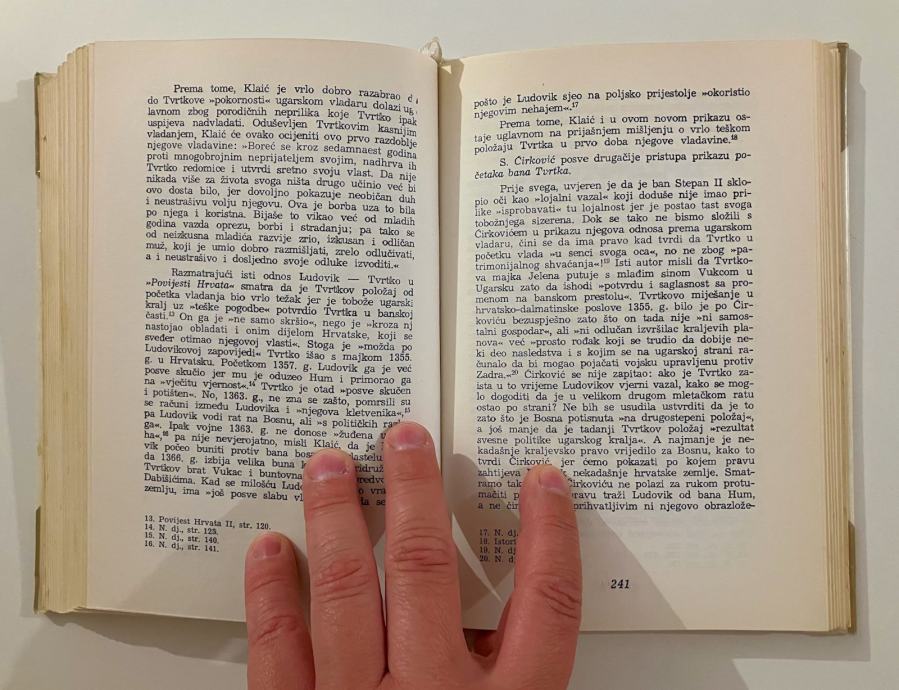 Prema tome, Klaić je vrlo dobro razabrao
do Tvrtkove »pokornosti« ugarskom vladaru dolazi
lavnom zbog porodičnih neprilika koje Tvrtko ipak
uspijeva nadvladati. Oduševljen Tvrtkovim kasnijim
vladanjem, Klaić će ovako ocijeniti ovo prvo razdoblje
njegove vladavine: »Boreć se kroz sedamnaest godina
proti mnogobrojnim neprijateljem svojim, nadhrva ih
Tvrtko redomice i utvrdi sretno svoju vlast. Da nije
nikada više za života svoga ništa drugo učinio već bi
ovo dosta bilo, jer dovoljno pokazuje neobičan duh
i neustrašivu volju njegovu. Ova je borba uza to bila
po njega i koristna. Bijaše to vikao već od mladih
godina vazda oprezu, borbi i stradanju; pa tako se
od neizkusna mladića razvije zrio, izkusan i odličan
muž, koji je umio dobro razmišljati, zrelo odlučivati,
a i neustrašivo i dosljedno svoje odluke izvoditi.«
Razmatrajući isti odnos Ludovik — Tvrtko u
»Povijesti Hrvata« smatra da je Tvrtkov položaj od
početka vladanja bio vrlo težak jer je tobože ugarski
kralj uz »teške pogodbe« potvrdio Tvrtka u banskoj
časti.¹³ On ga je »ne samo skršio«, nego je »kroza nj
nastojao obladati i onim dijelom Hrvatske, koji se
sveđer otimao njegovoj vlasti«. Stoga je »možda po
Ludovikovoj zapovijedi« Tvrtko išao s majkom 1355.
g. u Hrvatsku. Početkom 1357. g. Ludovik ga je već
posve skučio jer mu je oduzeo Hum i primorao ga
na »vječitu vjernost«.¹⁴ Tvrtko je otad »posve skučen
i potišten«. No, 1363. g., ne zna se zašto, pomrsili su
se računi između Ludovika i »njegova kletvenika«,¹⁵
pa Ludovik vodi rat na Bosnu, ali »s političkih
ga«. Ipak vojne 1363. g. ne donose »žuđena
ha«,¹⁶ pa nije nevjerojatno, misli Klaić, da je
vik počeo buniti protiv bana
da 1366. g. izbija velika buna
Tvrtkov brat Vukac i buntovna
Dabišićima. Kad se milošću
zemlju, ima »još posve slabu
13. Povijest Hrvata II, str. 120.
14. N. dj., str. 123.
15. N. dj., str. 140.
16. N. dj., str. 141.
pošto je Ludovik sjeo na poljsko prijestolje »okoristio
njegovim nehajem«.¹⁷
Prema tome, Klaić i u ovom novom prikazu os-
taje uglavnom na prijašnjem mišljenju o vrlo teškom
položaju Tvrtka u prvo doba njegove vladavine.¹⁸
S. Ćirković posve drugačije pristupa prikazu po-
četaka bana Tvrtka.
Prije svega, uvjeren je da je ban Stepan II sklo-
pio oči kao »lojalni vazal« koji doduše nije imao pri-
like »isprobavati« tu lojalnost jer je postao tast svoga
tobožnjega sizerena. Dok se tako ne bismo složili s
Ćirkovićem u prikazu njegova odnosa prema ugarskom
vladaru, čini se da ima pravo kad tvrdi da Tvrtko u
početku vlada »u senci svoga oca«, no ne zbog »pa-
trimonijalnog shvaćanja«!¹⁹ Isti autor misli da Tvrtko-
va majka Jelena putuje s mlađim sinom Vukcom u
Ugarsku zato da ishodi »potvrdu i saglasnost sa pro-
menom na banskom prestolu«. Tvrtkovo miješanje u
hrvatsko-dalmatinske poslove 1355. g. bilo je po Ćir-
koviću bezuspješno zato što on tada nije »ni samos-
talni gospodar«, ali »ni odlučan izvršilac kraljevih pla-
nova« već »prosto rođak koji se trudio da dobije ne-
ki deo nasledstva i s kojim se na ugarskoj strani ra-
čunalo da bi mogao pojačati vojsku upravljenu protiv
Zadra.«²⁰ Ćirković se nije zapitao: ako je Tvrtko za-
ista u to vrijeme Ludovikov vjerni vazal, kako se mog-
lo dogoditi da je u velikom drugom mletačkom ratu
ostao po strani? Ne bih se usudila ustvrditi da je to
zato što je Bosna potisnuta »na drugostepeni položaj«,
a još manje da je tadanji Tvrtkov položaj »rezultat
svesne politike ugarskog kralja«. A najmanje je ne-
kadašnje kraljevsko pravo vrijedilo za Bosnu, kako to
tvrdi Ćirković, jer ćemo pokazati po kojem pravu
zahtijeva nekadašnje hrvatske zemlje. Smat-
ramo Ćirkoviću ne polazi za rukom protu-
mačiti pravu traži Ludovik od bana Hum,
a ne prihvatljivim ni njegovo obrazlože-
17. N.
18.
19. N.
20. N.
241